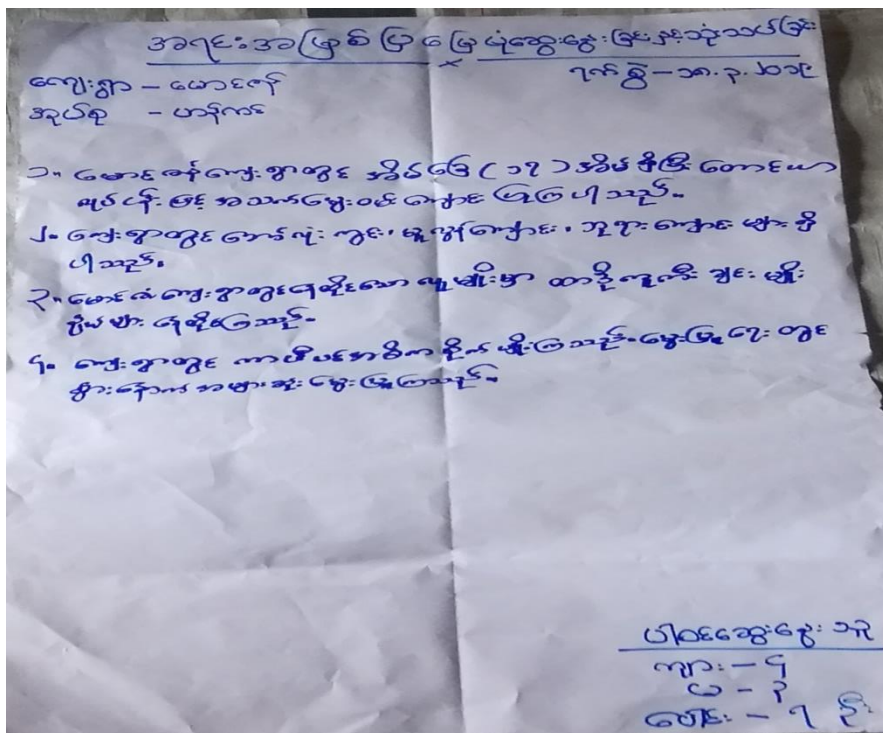 အရင်းအမြစ်ပြမြေပုံဆွေးနွေးခြင်းနှင့်သုံးသပ်ခြင်း
ရက်စွဲ – ၁၈.၃.၂၀၁၉
ကျေးရွာ – မောင်ဇန်
အုပ်စု – ဟန်ကင်
၁။ မောင်ဇန်ကျေးရွာတွင် အိမ်ခြေ (၁၇) အိမ်ရှိပြီး တောင်ယာ
လုပ်ငန်းဖြင့် အသက်မွေးဝမ်းကျောင်းပြုကြပါသည်။
၂။ ကျေးရွာတွင် ဘောလုံးကွင်း၊ မူလွန်ကျောင်း၊ ဘုရားကျောင်းများရှိ
ပါသည်။
၃။ မောင်ဇန်ကျေးရွာတွင်နေထိုင်သောလူမျိုးမှာ ထာဒိုကူကီးချင်းမျိုး
နွယ်များနေထိုင်ကြသည်။
၄။ ကျေးရွာတွင် ကာဖီပင်အဓိကစိုက်ပျိုးကြသည်။ မွေးမြူရေးတွင်
နွားနောက်အများဆုံးမွေးမြူကြသည်။
ပါဝင်ဆွေးနွေးသူ
ကျား – ၄
မ – ၃
ပေါင်း – ၇ ဦး